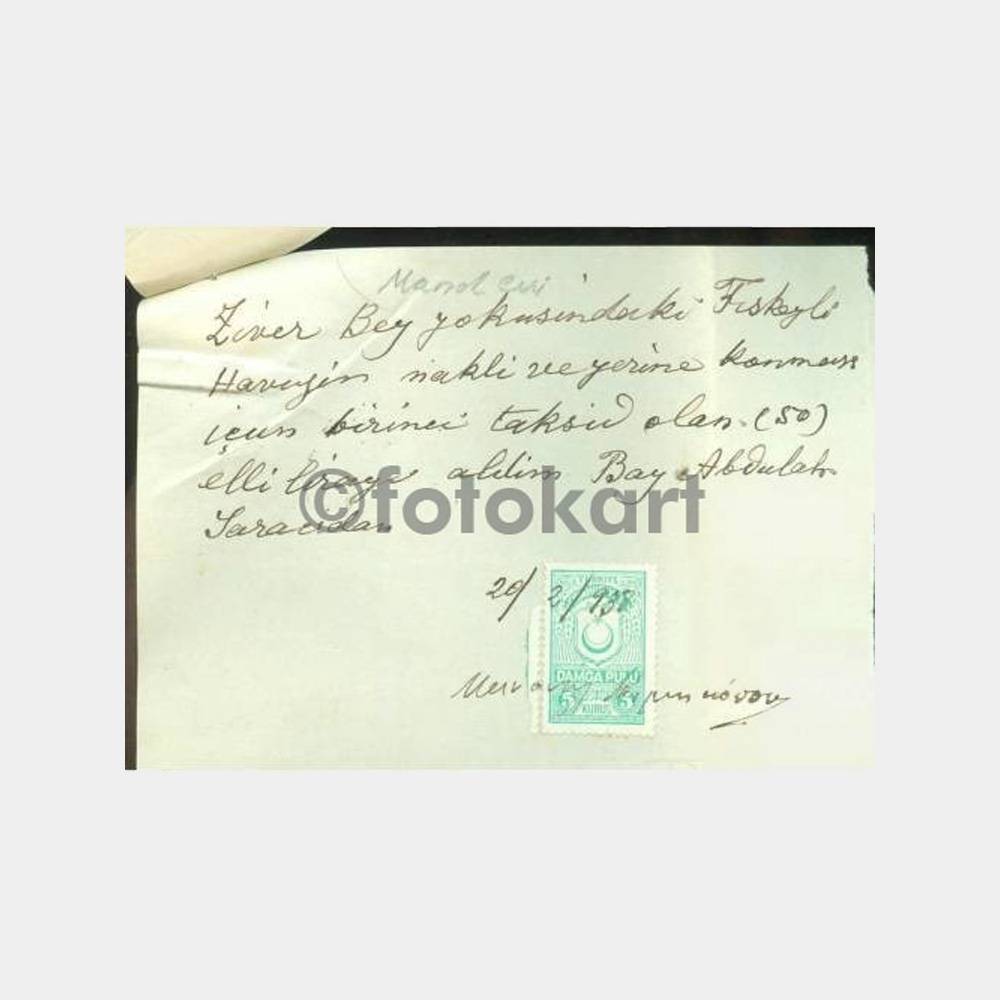 Ziver Bey yokusindaki Fiskeyli
Havuzin nakli ve yerine konmass
içun birinci taksid olan (50)
elli liraye aldim Bay Abdulah
Saracidan
©fotokart
20/2/938
TÜRKİYE
DAMGA PULU
5 KURUŞ 5